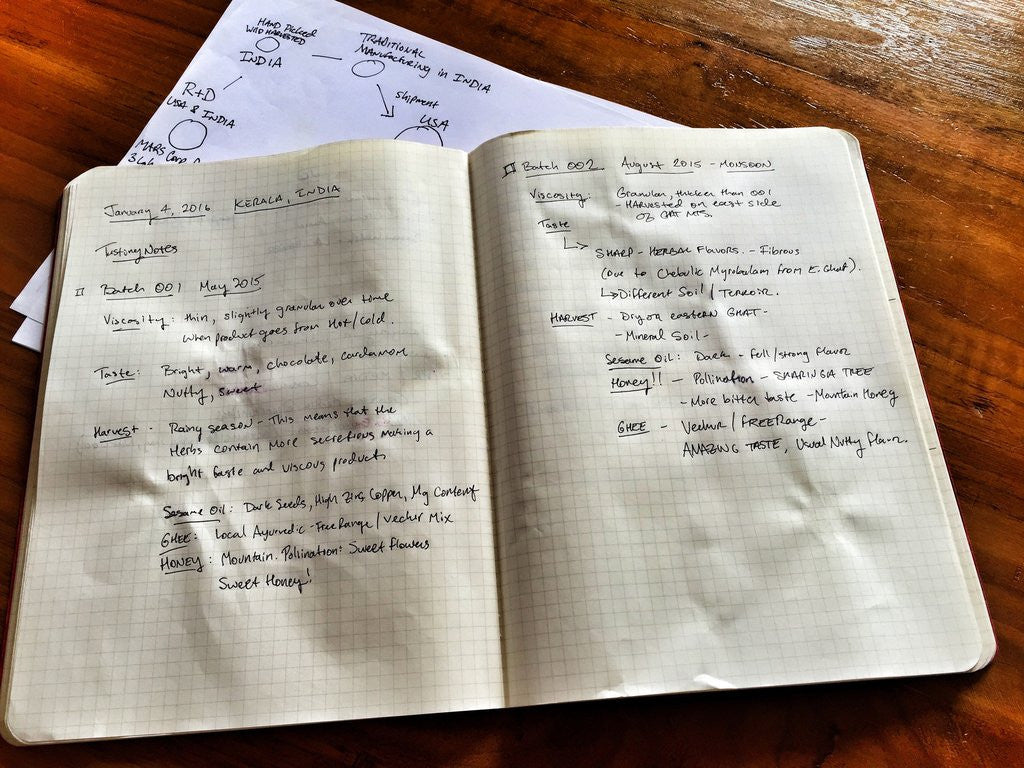 HAND Picked
WILD HARVESTED
INDIA
TRADITIONAL
MANUFACTURING in INDIA
Shipment
USA
R+D
USA & INDIA
MARS Corp
January 4, 2016 KERALA, INDIA
Tasting Notes
Batch 001 May 2015
Viscosity: thin, slightly granular over time
when product goes from Hot/cold.
Taste: Bright, warm, chocolate, cardamom
Nutty, sweet
Harvest - Rainy season - This means that the
Herbs contain more secretions making a
bright taste and viscous product.
Sesame Oil: Dark Seeds, High Zinc, Copper, Mg Content
GHEE: Local Ayurvedic - Free Range / Vechur Mix
HONEY: Mountain. Pollination: Sweet flowers
Sweet Honey!
Batch 002 August 2015 - MONSOON
Viscosity: Granular, thicker than 001
- HARVESTED on east side
of GHAT MTS.
Taste
SHARP - HERBAL Flavors. - Fibrous
(Due to Chebulic Myrobalam from E. Ghat).
Different Soil / Terroir.
HARVEST - Dry on eastern GHAT -
- Mineral Soil -
Sesame Oil: Dark - full/strong flavor
Honey!! - Pollination - SHARINGA TREE
- More bitter taste - Mountain Honey
GHEE - Vechur / FREE Range -
AMAZING TASTE, Usual Nutty flavor.